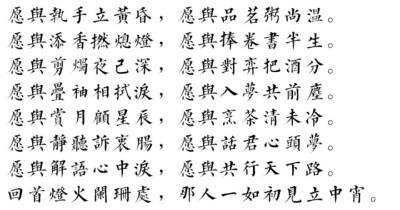 愿與執手立黃昏，愿與品茗粥尚溫。
愿與添香撚熄燈，愿與捧卷書半生。
愿與剪燭夜已深，愿與對弈把酒分。
愿與疊袖相拭淚，愿與入夢共前塵。
愿與賞月顧星辰，愿與烹茶清未冷。
愿與靜聽訴衷腸，愿與話君心頭夢。
愿與解語心中淚，愿與共行天下路。
回首燈火闌珊處，那人一如初見立中宵。